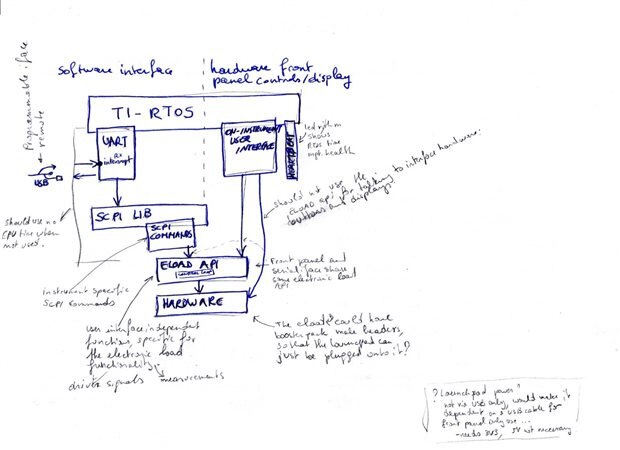 software interface
hardware front
panel controls/display
Programmable iface
remote
TI-RTOS
UART
Rx
interrupt
USB
ON-INSTRUMENT
USER
INTERFACE
HEARTBEAT
led rythm
shows
RTOS time
mgt. health
should not use the
ELOAD api for talking to interface hardware:
buttons and displays.
SCPI LIB
should use no
CPU time when
not used.
SCPI
COMMANDS
instrument specific
SCPI commands
ELOAD API
Front panel and
serial iface share
same electronic load
API
HARDWARE
user interface independent
functions, specific for
the electronic load
functionality
driver signals
measurements
The eload could have
boosterpack male headers,
so that the launchpad can
just be plugged onto it?
? Launchpad power?
not via USB only, would make it
dependent on a USB cable for
front panel only use ...
- needs 3V3, 5V not necessary